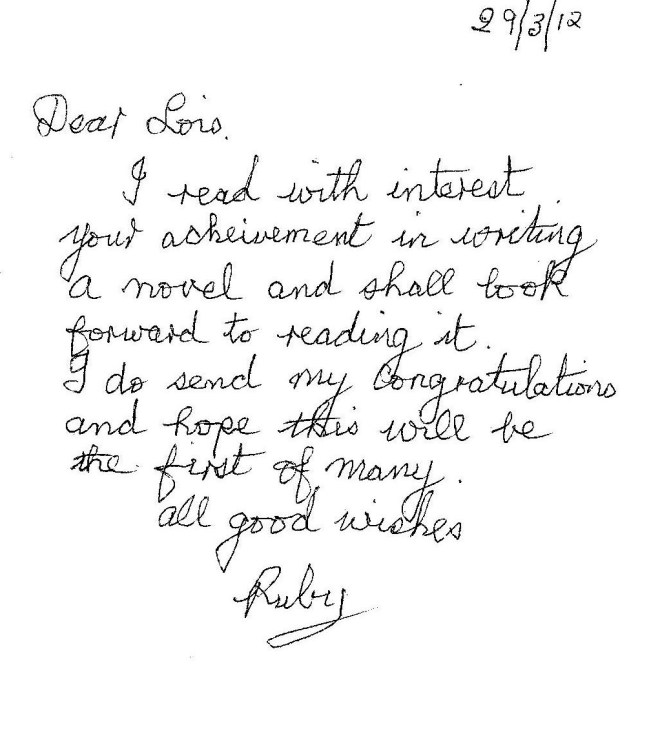 29/3/12
Dear Lois.
I read with interest
your acheivement in writing
a novel and shall look
forward to reading it.
I do send my Congratulations
and hope this will be
the first of many.
all good wishes
Ruby